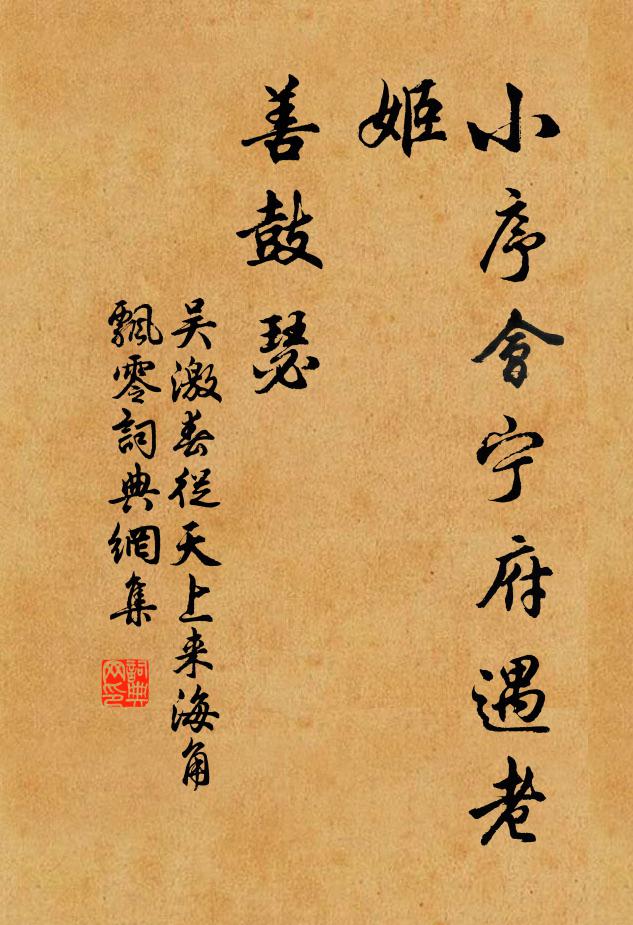 小序會宁府遇老
姬
善鼓瑟
吴激春從天上来海角
飄零詞典網集
詞典
网印